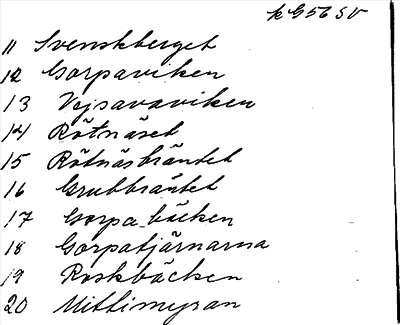 k G 56 SV
11 Svenskberget
12 Gorpaviken
13 Vejsavaviken
14 Rötnäset
15 Rötnäsbräntet
16 Grubbräntet
17 Gorpa-bäcken
18 Gorpatjärnarna
19 Roskbäcken
20 Mittimyran